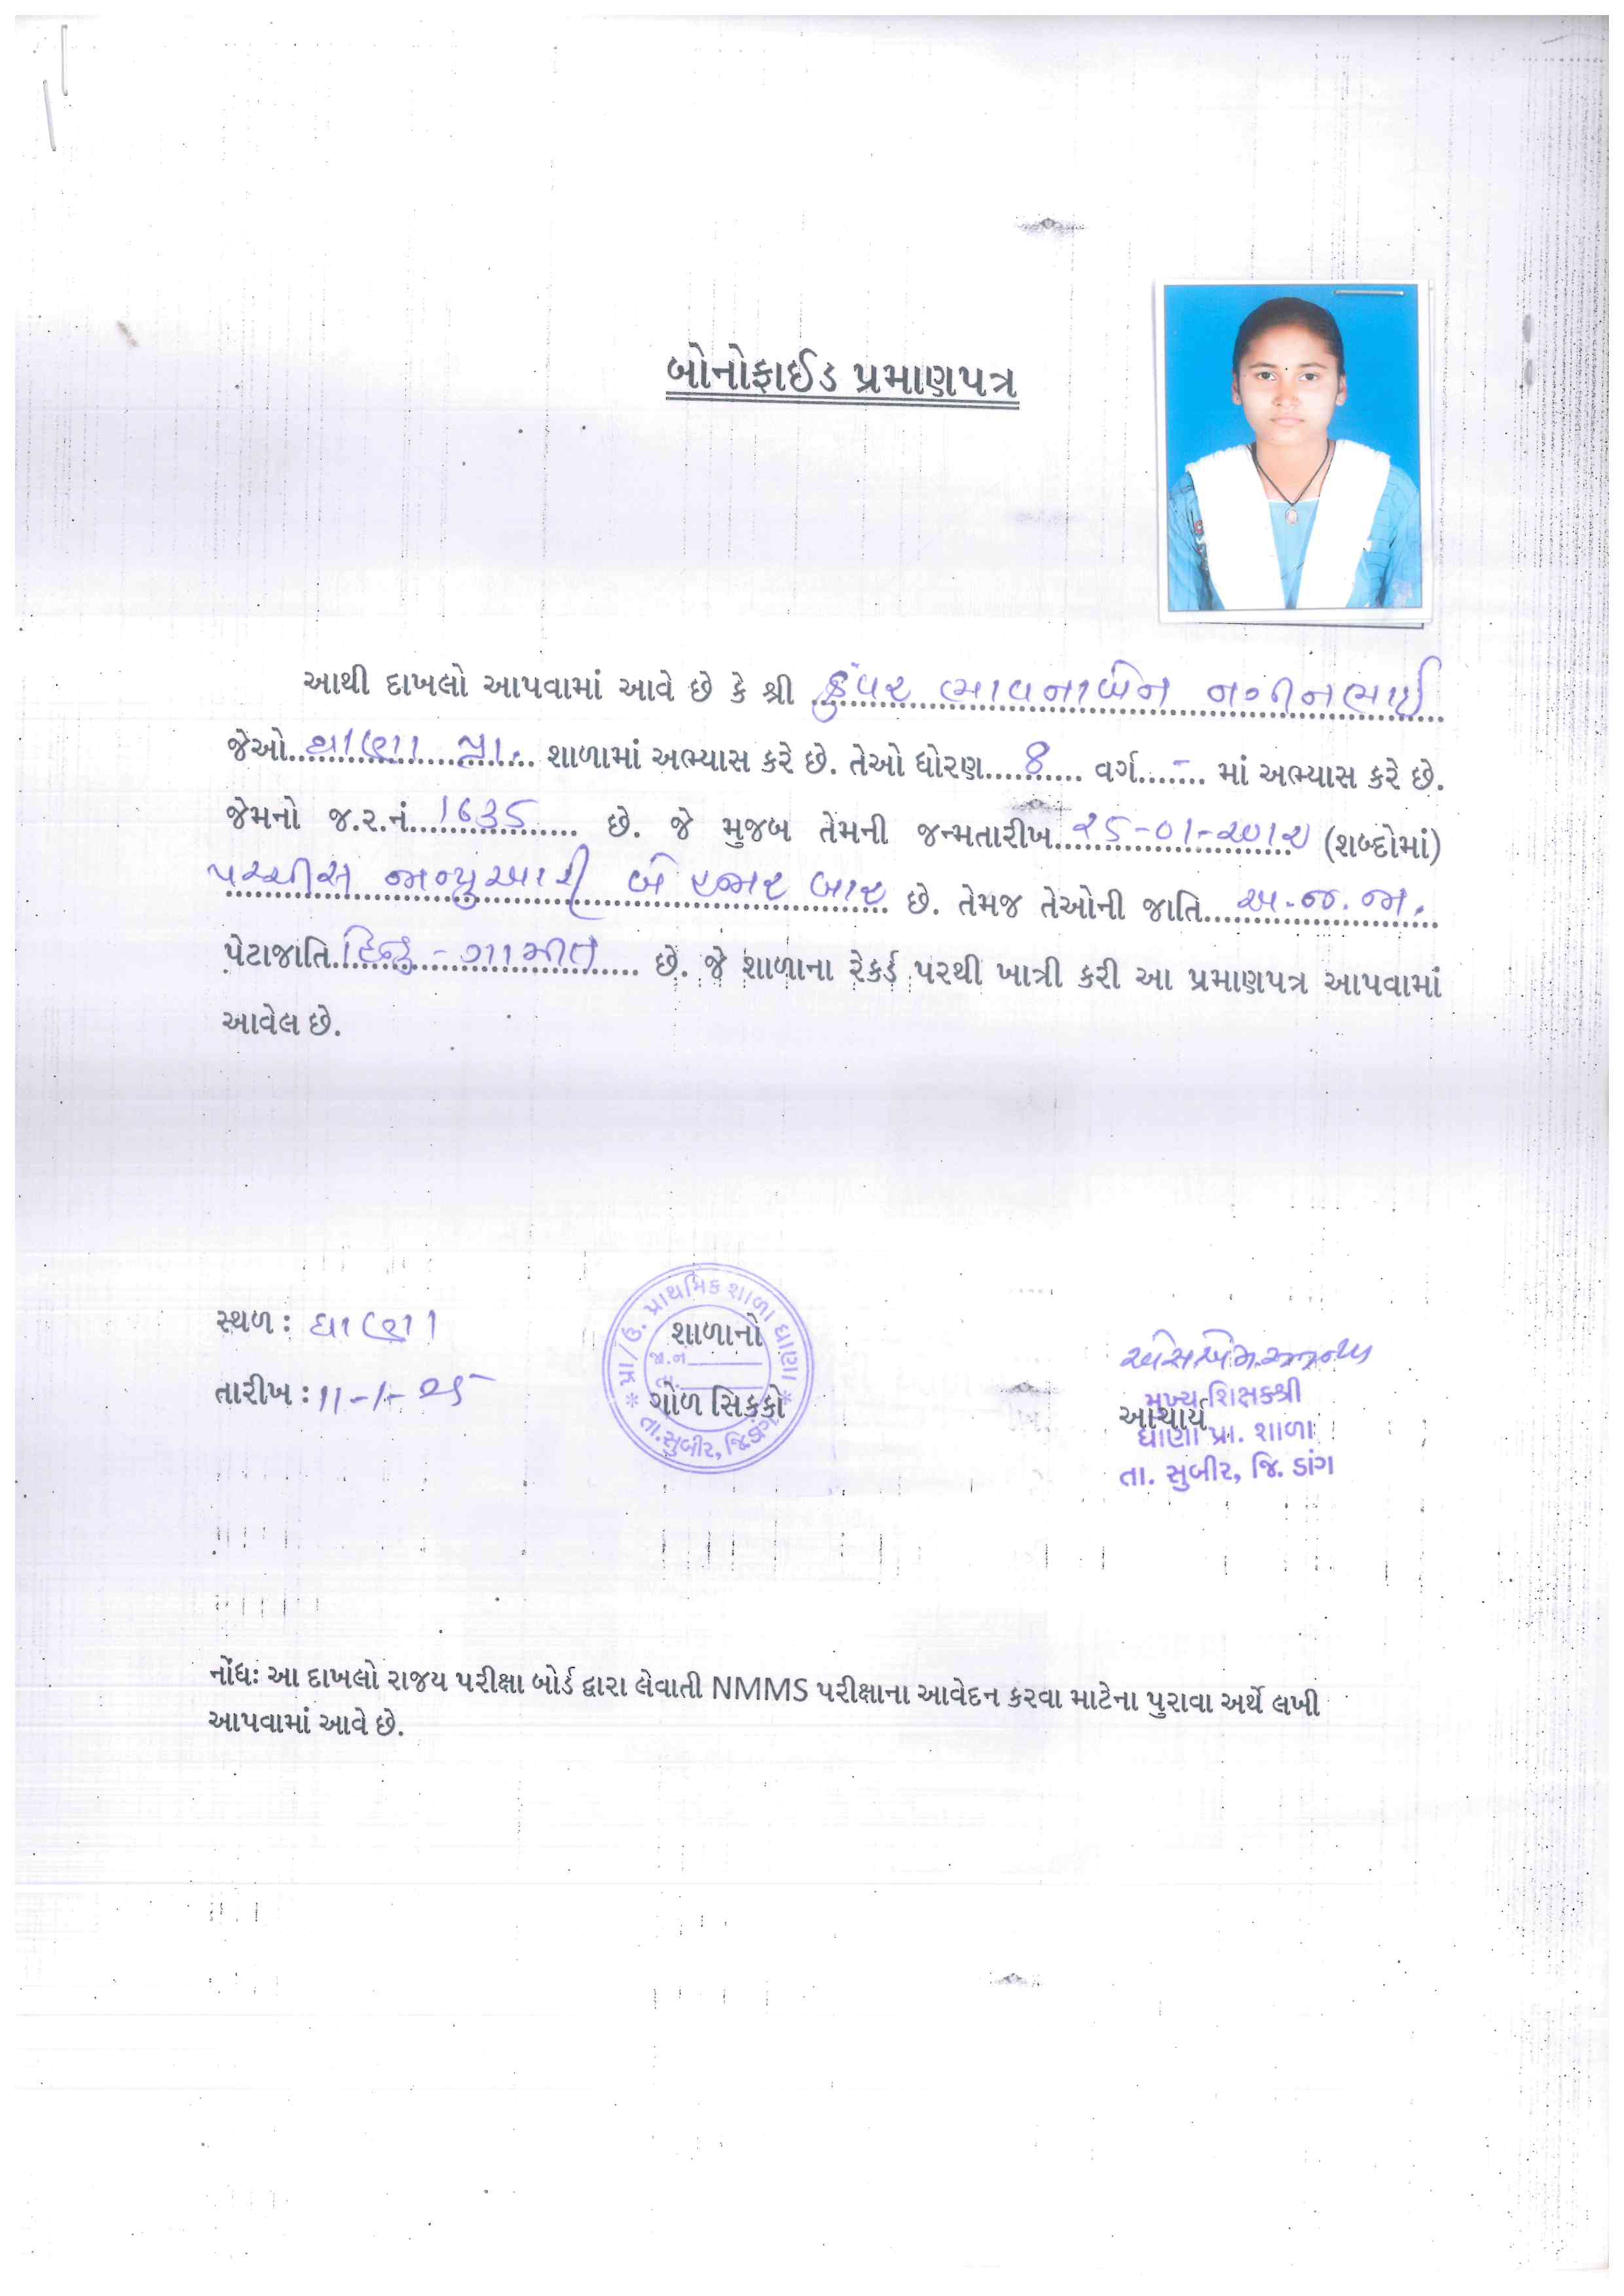 બોનોફાઈડ પ્રમાણપત્ર
આથી દાખલો આપવામાં આવે છે કે શ્રી કુંવર ભાવનાબેન નગીનભાઈ
જેઓ ઘાણા પ્રા. શાળામાં અભ્યાસ કરે છે. તેઓ ધોરણ 8 વર્ગ - માં અભ્યાસ કરે છે.
જેમનો જ.ર.નં. 1635 છે. જે મુજબ તેમની જન્મતારીખ ૨૫-૦૧-૨૦૧૨ (શબ્દોમાં)
પચ્ચીસ જાન્યુઆરી બે હજાર બાર છે. તેમજ તેઓની જાતિ અ.જ.જા.
પેટાજાતિ હિન્દુ - ગામીત છે. જે શાળાના રેકર્ડ પરથી ખાત્રી કરી આ પ્રમાણપત્ર આપવામાં
આવેલ છે.
સ્થળ : ઘાણા
તારીખ : 11-1-૨૫
પ્રા/ઉ. પ્રાથમિક શાળા ઘાણા
શાળાનો
જા.ન
તા.
ગોળ સિકકો
તા.સુબીર, જિ.ડાંગ
મુખ્ય શિક્ષકશ્રી
આચાર્ય
ઘાણા પ્રા. શાળા
તા. સુબીર, જિ. ડાંગ
નોંધ: આ દાખલો રાજય પરીક્ષા બોર્ડ દ્વારા લેવાતી NMMS પરીક્ષાના આવેદન કરવા માટેના પુરાવા અર્થે લખી
આપવામાં આવે છે.